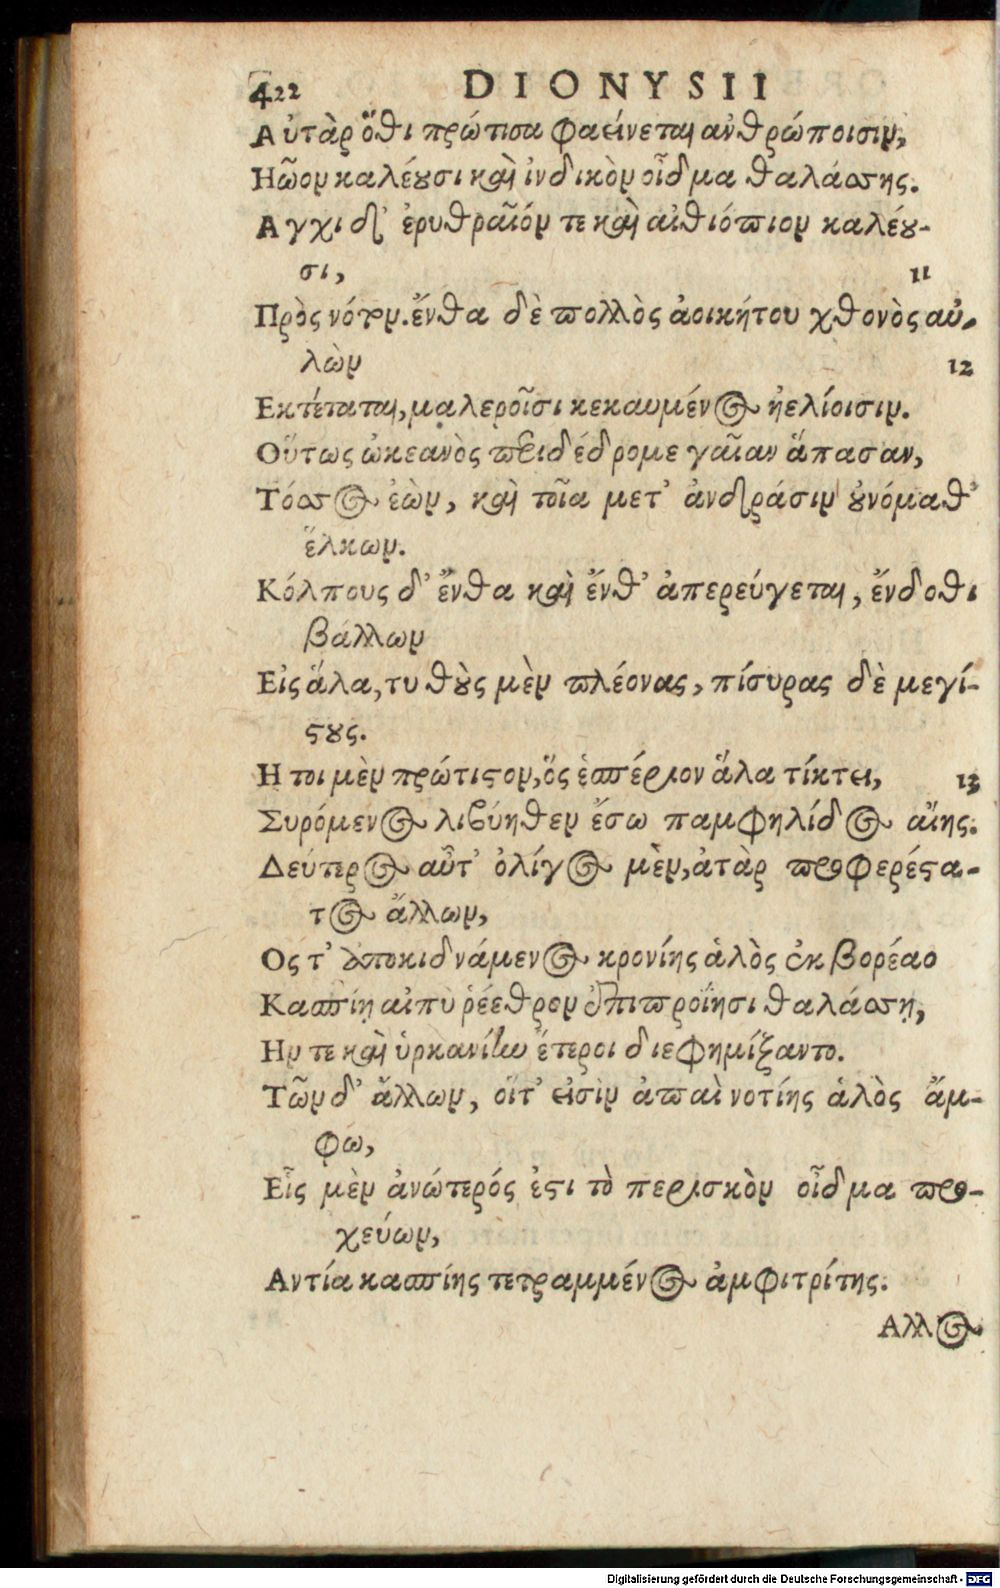 422 DIONYSII
Αὐτὰρ ὅθι πρώτιστα φαείνεται ἀνθρώποισιν,
Ηῶον καλέουσι καὶ ἰνδικὸν οἶδμα θαλάσσης.
Αγχι δ' ἐρυθραῖόν τε καὶ αἰθιόπιον καλέου-
σι, 11
Πρὸς νότον. ἔνθα δὲ πολλὸς ἀοικήτου χθονὸς αὐ-
λὼν 12
Εκτέταται, μαλεροῖσι κεκαυμένος ἠελίοισιν.
Οὕτως ὠκεανὸς περιδέδρομε γαῖαν ἅπασαν,
Τόσσος ἐὼν, καὶ τοῖα μετ' ἀνδράσιν οὐνόμαθ'
ἕλκων.
Κόλπους δ' ἔνθα καὶ ἔνθ' ἀπερεύγεται, ἔνδοθι
βάλλων
Εἰς ἅλα, τυθοὺς μὲν πλέονας, πίσυρας δὲ μεγί-
στους.
Η τοι μὲν πρώτιστον, ὃς ἑσπέριον ἅλα τίκτει, 13
Συρόμενος λιβύηθεν ἔσω παμφηλίδος αἴης.
Δεύτερος αὖτ' ὀλίγος μὲν, ἀτὰρ προφερέστα-
τος ἄλλων,
Ος τ' ἀποκιδνάμενος κρονίης ἁλὸς ἐκ βορέαο
Κασπίῃ αἰπὺ ῥέεθρον ἐπιπροΐησι θαλάσσῃ,
Ην τε καὶ ὑρκανίην ἕτεροι διεφημίξαντο.
Τῶν δ' ἄλλων, οἵτ' εἰσὶν ἀπαὶ νοτίης ἁλὸς ἄμ-
φω,
Εἷς μὲν ἀνώτερός ἐστι τὸ περσικὸν οἶδμα προ-
χεύων,
Αντία κασπίης τετραμμένος ἀμφιτρίτης.
Αλλος
Digitalisierung gefördert durch die Deutsche Forschungsgemeinschaft - DFG